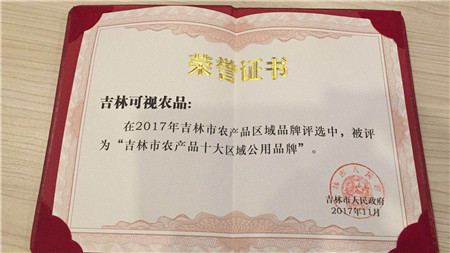 荣誉证书
吉林可视农品:
在2017年吉林市农产品区域品牌评选中，被评
为“吉林市农产品十大区域公用品牌”。
吉林市人民政府
2017年11月